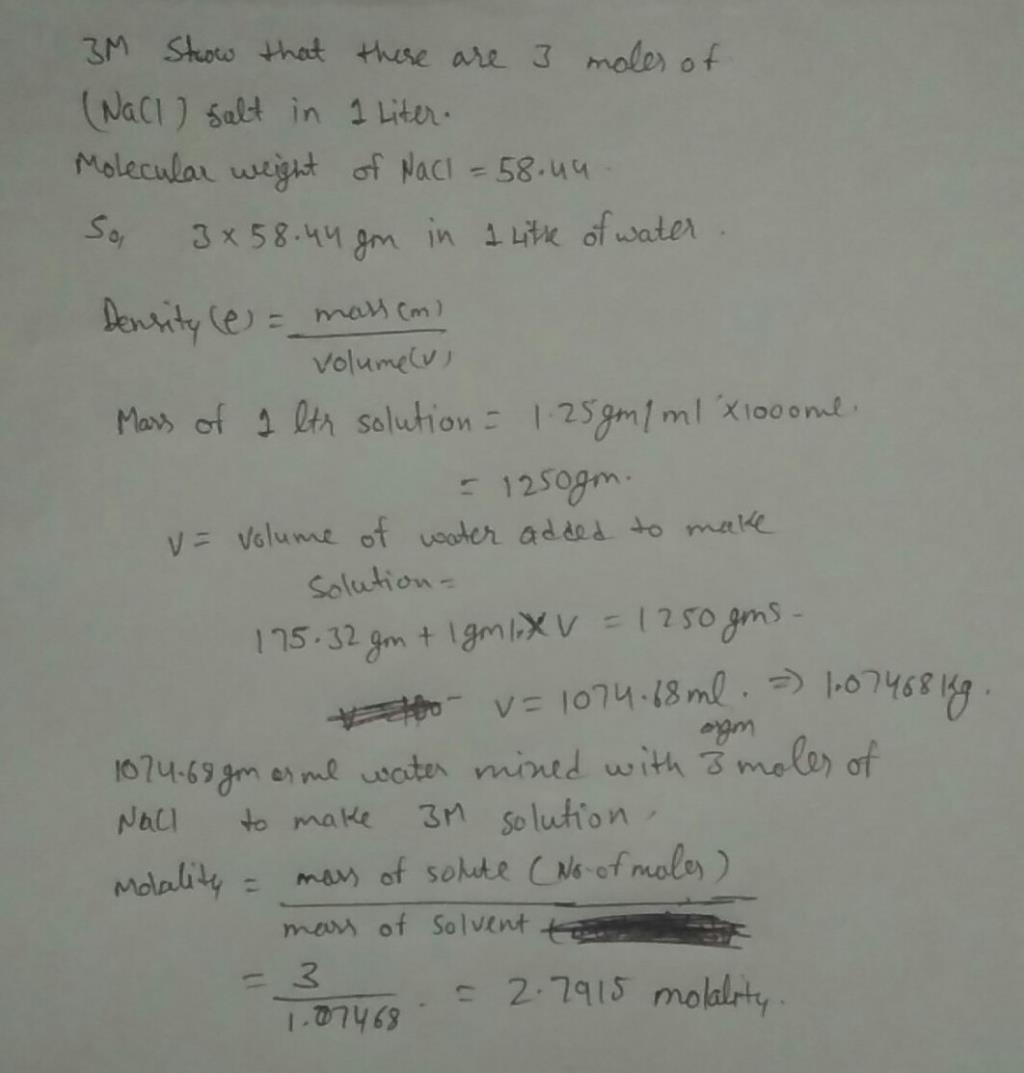 3M Show that there are 3 moles of
(NaCl) salt in 1 Liter.
Molecular weight of NaCl = 58.44
So, 3 x 58.44 gm in 1 Litre of water.
Density (ρ) = mass (m)
volume (v)
Mass of 1 ltr solution = 1.25gm/ml x1000ml.
= 1250gm.
V = volume of water added to make
solution =
175.32 gm + 1gm/. X V = 1250 gms
V = 1074.68ml. ⇒ 1.07468 Kg.
orgm
1074.68 gm or ml water mixed with 3 moles of
NaCl to make 3M solution.
Molality = mass of solute (No. of moles)
mass of solvent
= 3
1.07468 . = 2.7915 molality.